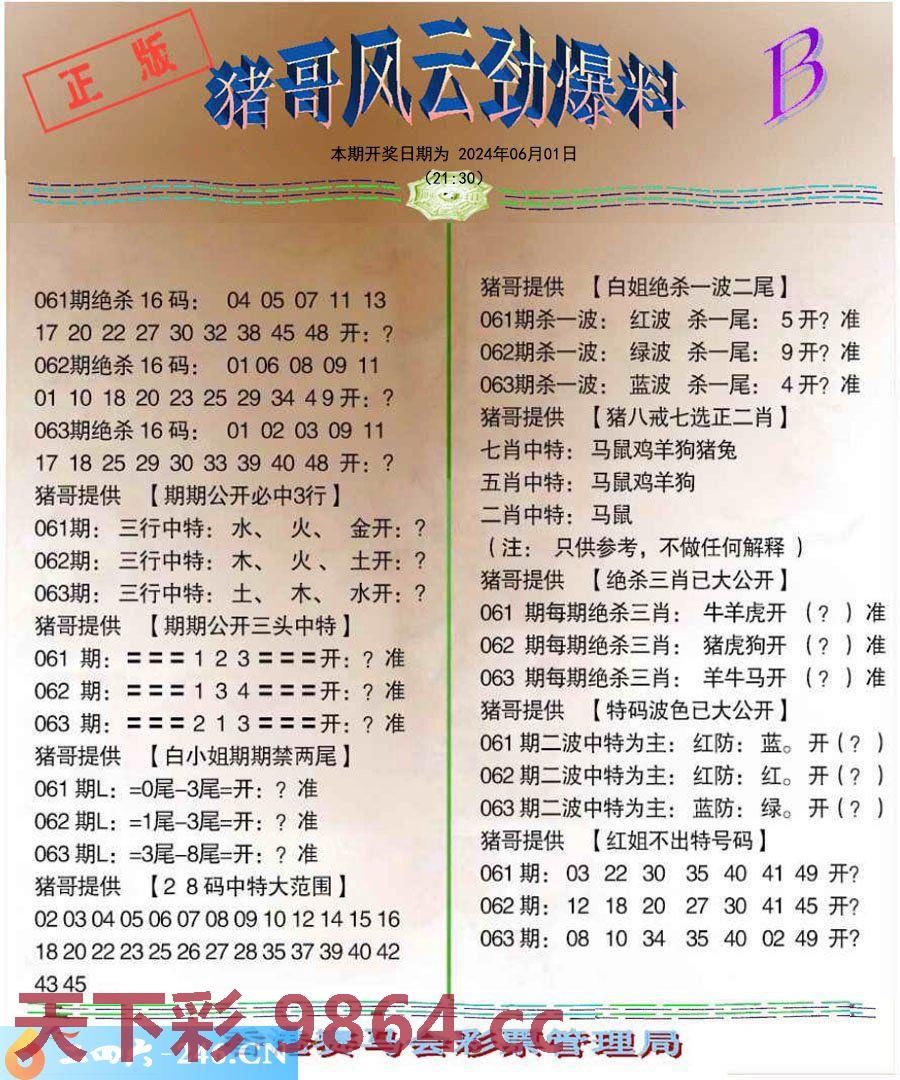 正版
猪哥风云劲爆料
B
本期开奖日期为 2024年06月01日
(21:30)
061期绝杀16码： 04 05 07 11 13
17 20 22 27 30 32 38 45 48 开：?
062期绝杀16码： 01 06 08 09 11
01 10 18 20 23 25 29 34 49 开：?
063期绝杀16码： 01 02 03 09 11
17 18 25 29 30 33 39 40 48 开：?
猪哥提供 【期期公开必中3行】
061期： 三行中特： 水、 火、 金开：?
062期： 三行中特： 木、 火、 土开：?
063期： 三行中特： 土、 木、 水开：?
猪哥提供 【期期公开三头中特】
061 期：〓〓〓 1 2 3 〓〓〓开：? 准
062 期：〓〓〓 1 3 4 〓〓〓开：? 准
063 期：〓〓〓 2 1 3 〓〓〓开：? 准
猪哥提供 【白小姐期期禁两尾】
061 期L：=0尾-3尾=开：? 准
062 期L：=1尾-3尾=开：? 准
063 期L：=3尾-8尾=开：? 准
猪哥提供 【28码中特大范围】
02 03 04 05 06 07 08 09 10 12 14 15 16
18 20 22 23 25 26 27 28 35 37 39 40 42
43 45
猪哥提供 【白姐绝杀一波二尾】
061期杀一波： 红波 杀一尾： 5 开? 准
062期杀一波： 绿波 杀一尾： 9 开? 准
063期杀一波： 蓝波 杀一尾： 4 开? 准
猪哥提供 【猪八戒七选正二肖】
七肖中特： 马鼠鸡羊狗猪兔
五肖中特： 马鼠鸡羊狗
二肖中特： 马鼠
（注： 只供参考，不做任何解释 ）
猪哥提供 【绝杀三肖已大公开】
061 期每期绝杀三肖： 牛羊虎开 （? ）准
062 期每期绝杀三肖： 猪虎狗开 （? ）准
063 期每期绝杀三肖： 羊牛马开 （? ）准
猪哥提供 【特码波色已大公开】
061 期二波中特为主： 红防： 蓝。 开（? ）
062 期二波中特为主： 红防： 红。 开（? ）
063 期二波中特为主： 蓝防： 绿。 开（? ）
猪哥提供 【红姐不出特号码】
061 期： 03 22 30 35 40 41 49 开?
062 期： 12 18 20 27 30 41 45 开?
063 期： 08 10 34 35 40 02 49 开?
天下彩 9864.cc
二四六-246.CN
香港赛马会彩票管理局